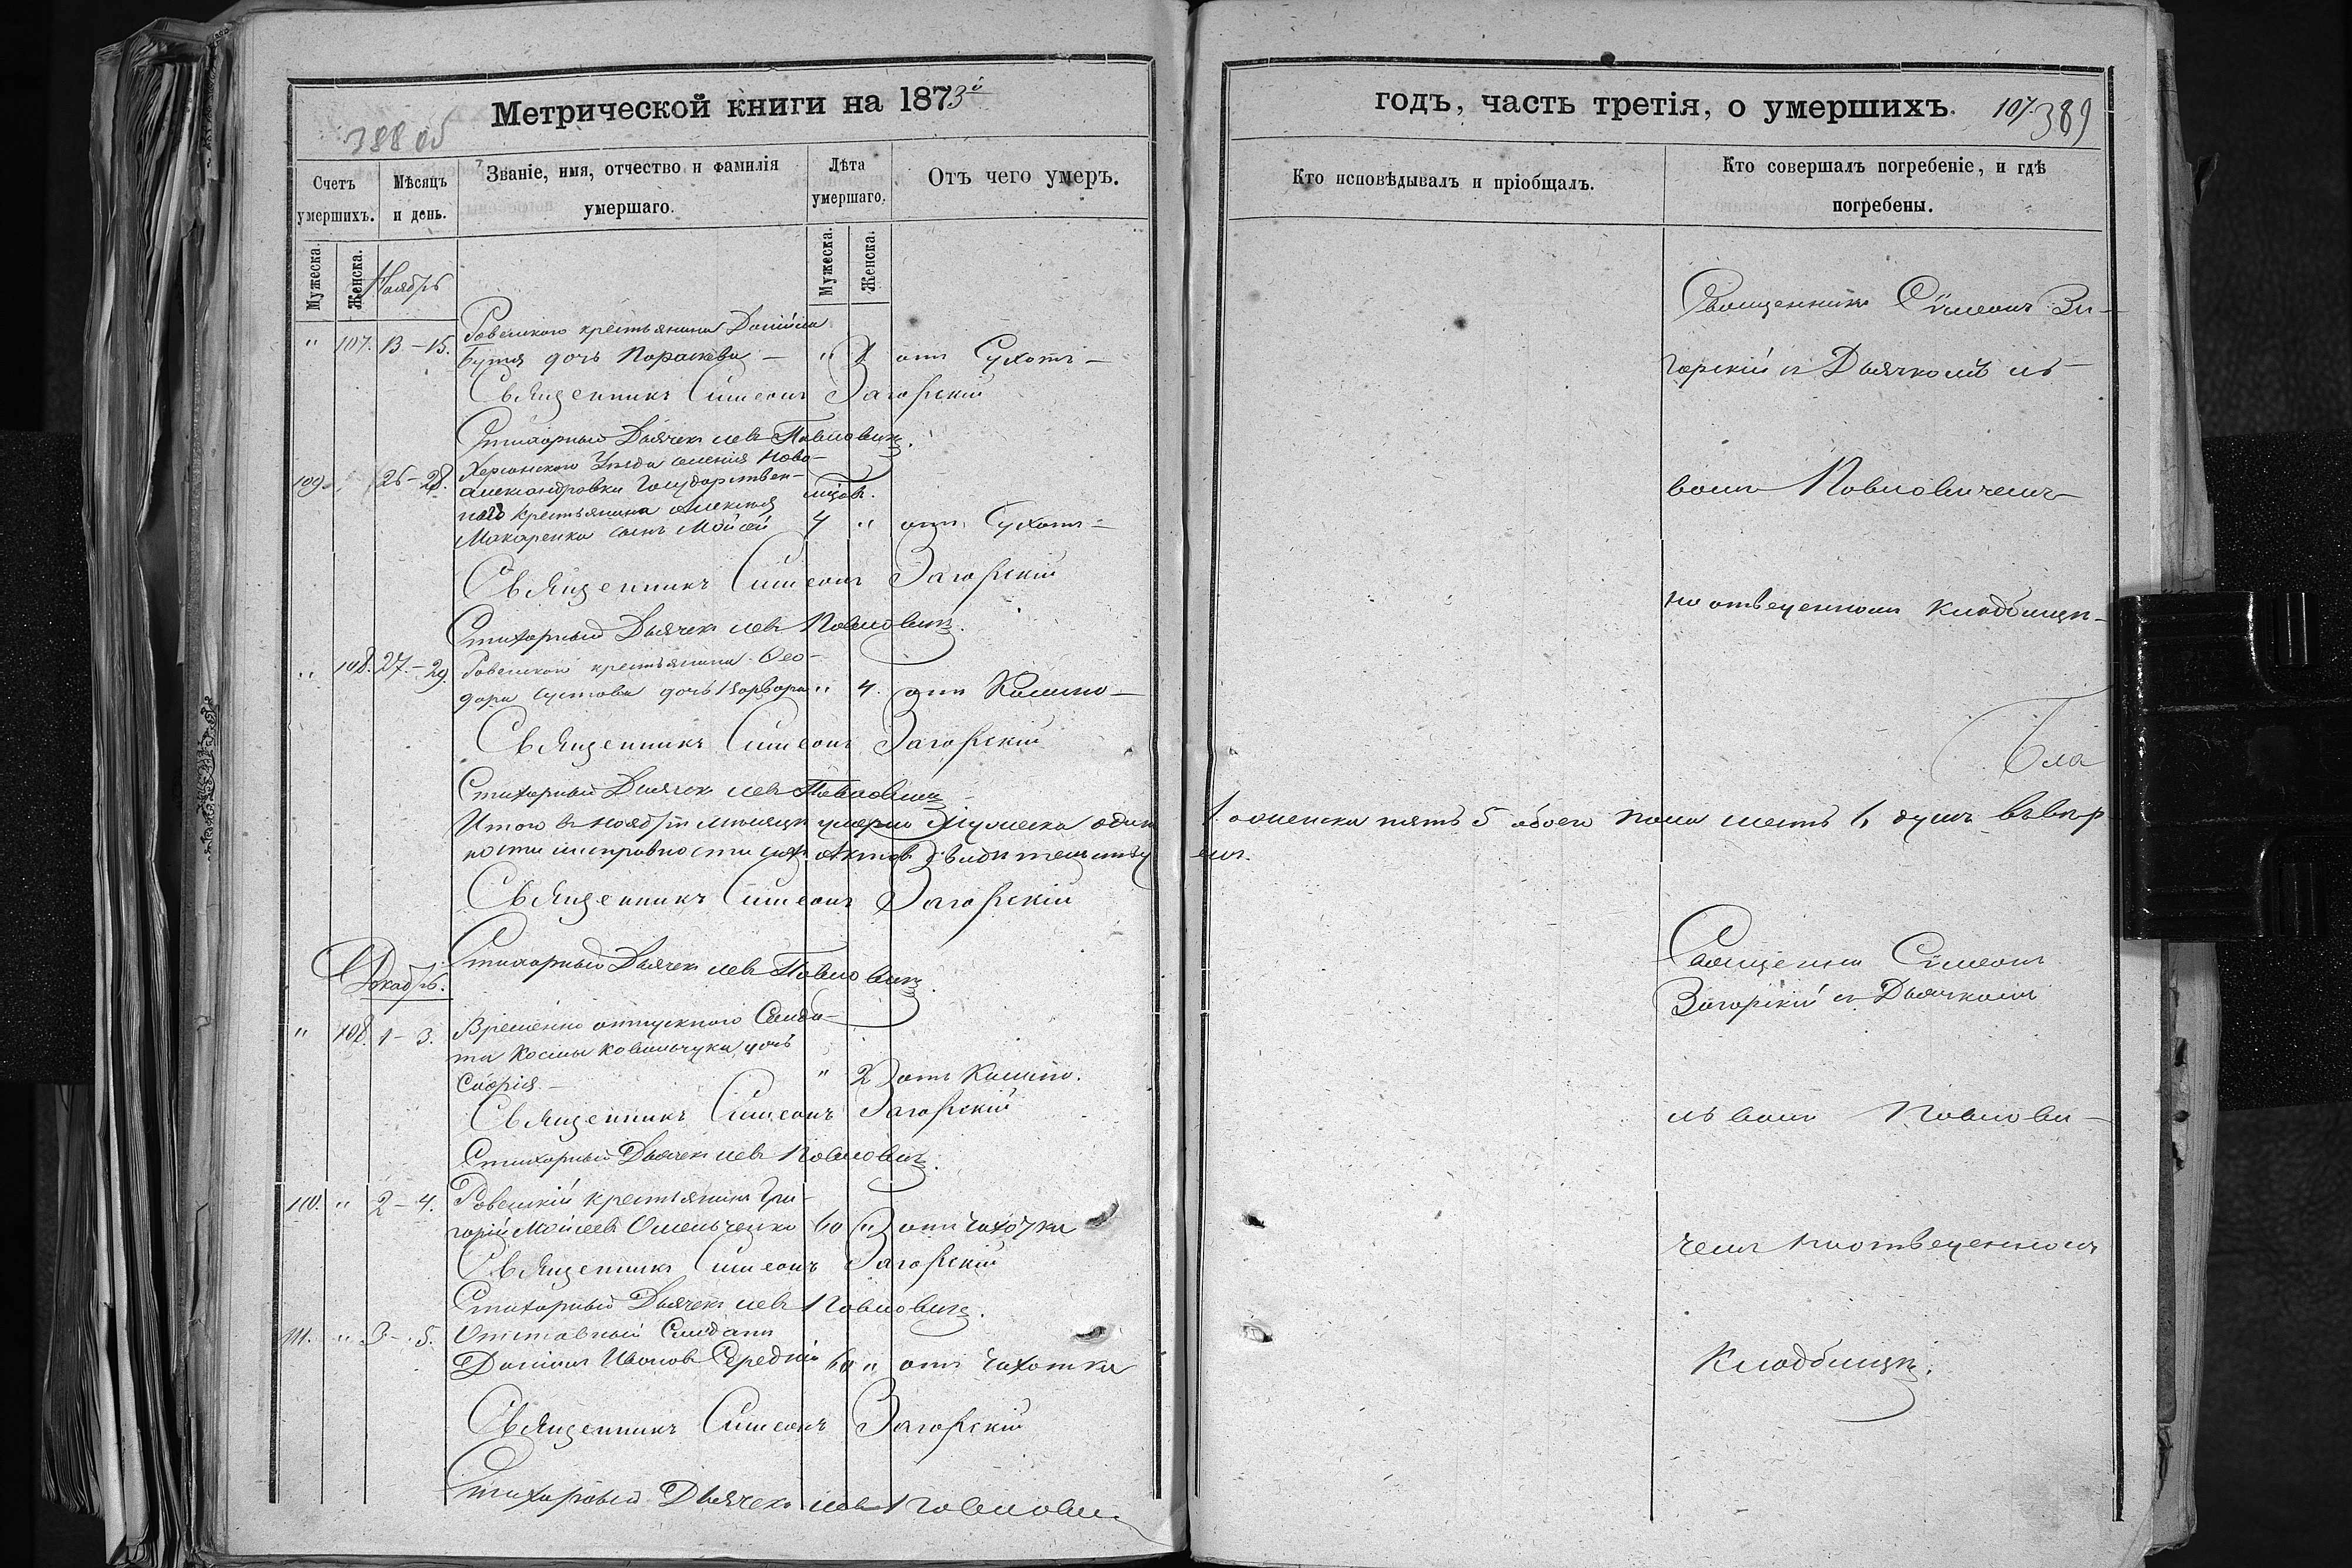 Метрической книги на 1873й
388 об
Счетъ умершихъ.
Мѣсяцъ и день.
Званіе, имя, отчество и фамилія умершаго.
Лѣта умершаго.
Отъ чего умеръ.
Мужеска.
Женска.
Мужеска.
Женска.
Ноябрь
" 107. 13-15. Ровенского крестьянина
дочь Параскева - " 1 отъ Сухотъ -
Священникъ Симеонъ Загорскій
Стихарный Дьячекъ Левъ Павловичъ.
Херсонского Уѣзда селенія Ново-
109. 26-28. александровки Государствен-
наго крестьянина Алексѣя мѣсяц.
Макаренка сынъ Мойсей 4 " отъ Сухотъ -
Священникъ Симеонъ Загорскій
Стихарный Дьячекъ Левъ Павловичъ.
" 108. 27.-29. Ровенского крестьянина Ѳео-
дора дочь Варвара " 4. отъ Кашлю -
Священникъ Симеонъ Загорскій
Стихарный Дьячекъ Левъ Павловичъ
Итого въ Ноябрѣ мѣсяцѣ умерло Мужеска одинъ
ности исправности сихъ Актовъ свидѣтельству
Священникъ Симеонъ Загорскій
Стихарный Дьячекъ Левъ Павловичъ.
Декабрь.
" 108. 1-3. Временно отпускного Солда-
та Космы Ковальчука дочь
Софія - " 2 отъ Кашлю.
Священникъ Симеонъ Загорскій
Стихарный Дьячекъ Левъ Павловичъ.
110. " 2-4. Ровенскій крестьянинъ Гри-
горій Мойсеевъ Омельченко 60 " отъ Чахотки
Священникъ Симеонъ Загорскій
Стихарный Дьячекъ Левъ Павловичъ.
111. " 3-5. Отставный Солдатъ
Даніилъ Ивановъ Середній 60 " отъ Чахотки
Священникъ Симеонъ Загорскій
Стихарный Дьячекъ Левъ Павловичъ
годъ, часть третія, о умершихъ.
107.
389
Кто исповѣдывалъ и пріобщалъ.
Кто совершалъ погребеніе, и гдѣ погребены.
Священникъ Симеонъ За-
горскій съ Дьячкомъ Ль-
вомъ Павловичемъ
на отведенномъ кладбищѣ-
Бла
1. а женска пять 5 обоего пола шесть 6 душъ въ вѣр
емъ.
Симеонъ
Загорскій съ Дьячкомъ
Львомъ Павлови-
чемъ на отведенномъ
Кладбищѣ.